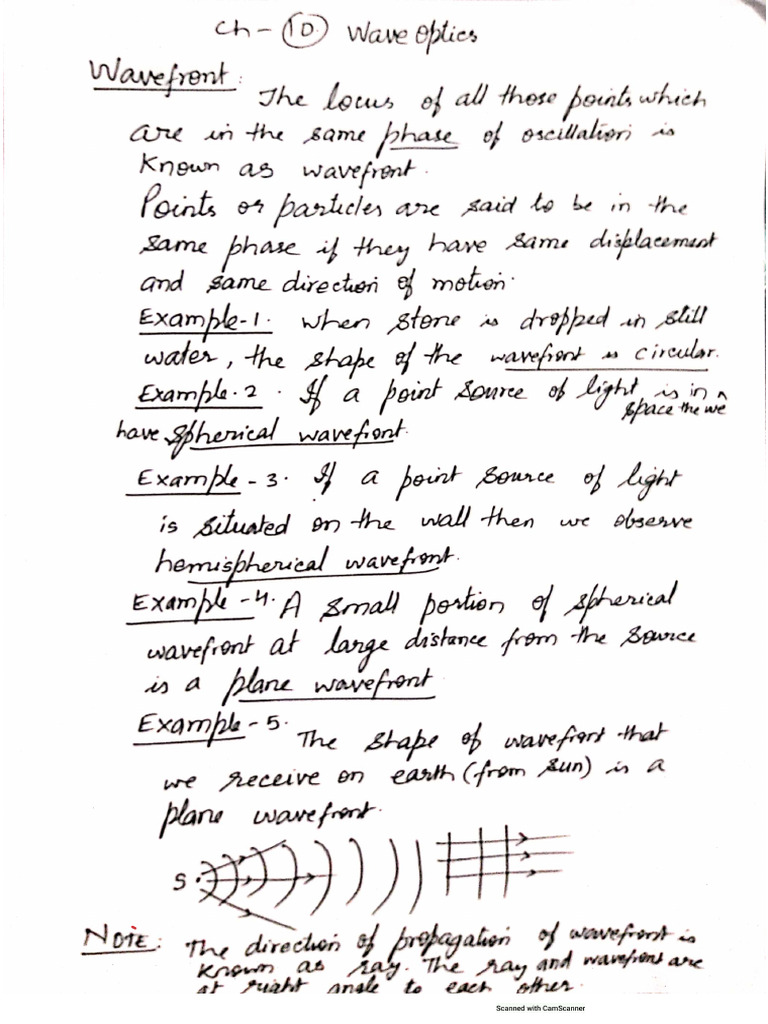 Ch - 10 Wave optics
Wavefront:
The locus of all those points which
are in the same phase of oscillation is
Known as wavefront.
Points or particles are said to be in the
same phase if they have same displacement
and same direction of motion.
Example-1. When stone is dropped in still
water, the shape of the wavefront is circular.
Example.2. If a point source of light is in
space the we
have spherical wavefront.
Example-3. If a point source of light
is situated on the wall then we observe
hemispherical wavefront.
Example-4. A small portion of spherical
wavefront at large distance from the source
is a plane wavefront
Example-5. The shape of wavefront that
we receive on earth (from sun) is a
plane wavefront.
S
NOTE: The direction of propagation of wavefront is
known as ray. The ray and wavefront are
at right angle to each other.
Scanned with CamScanner